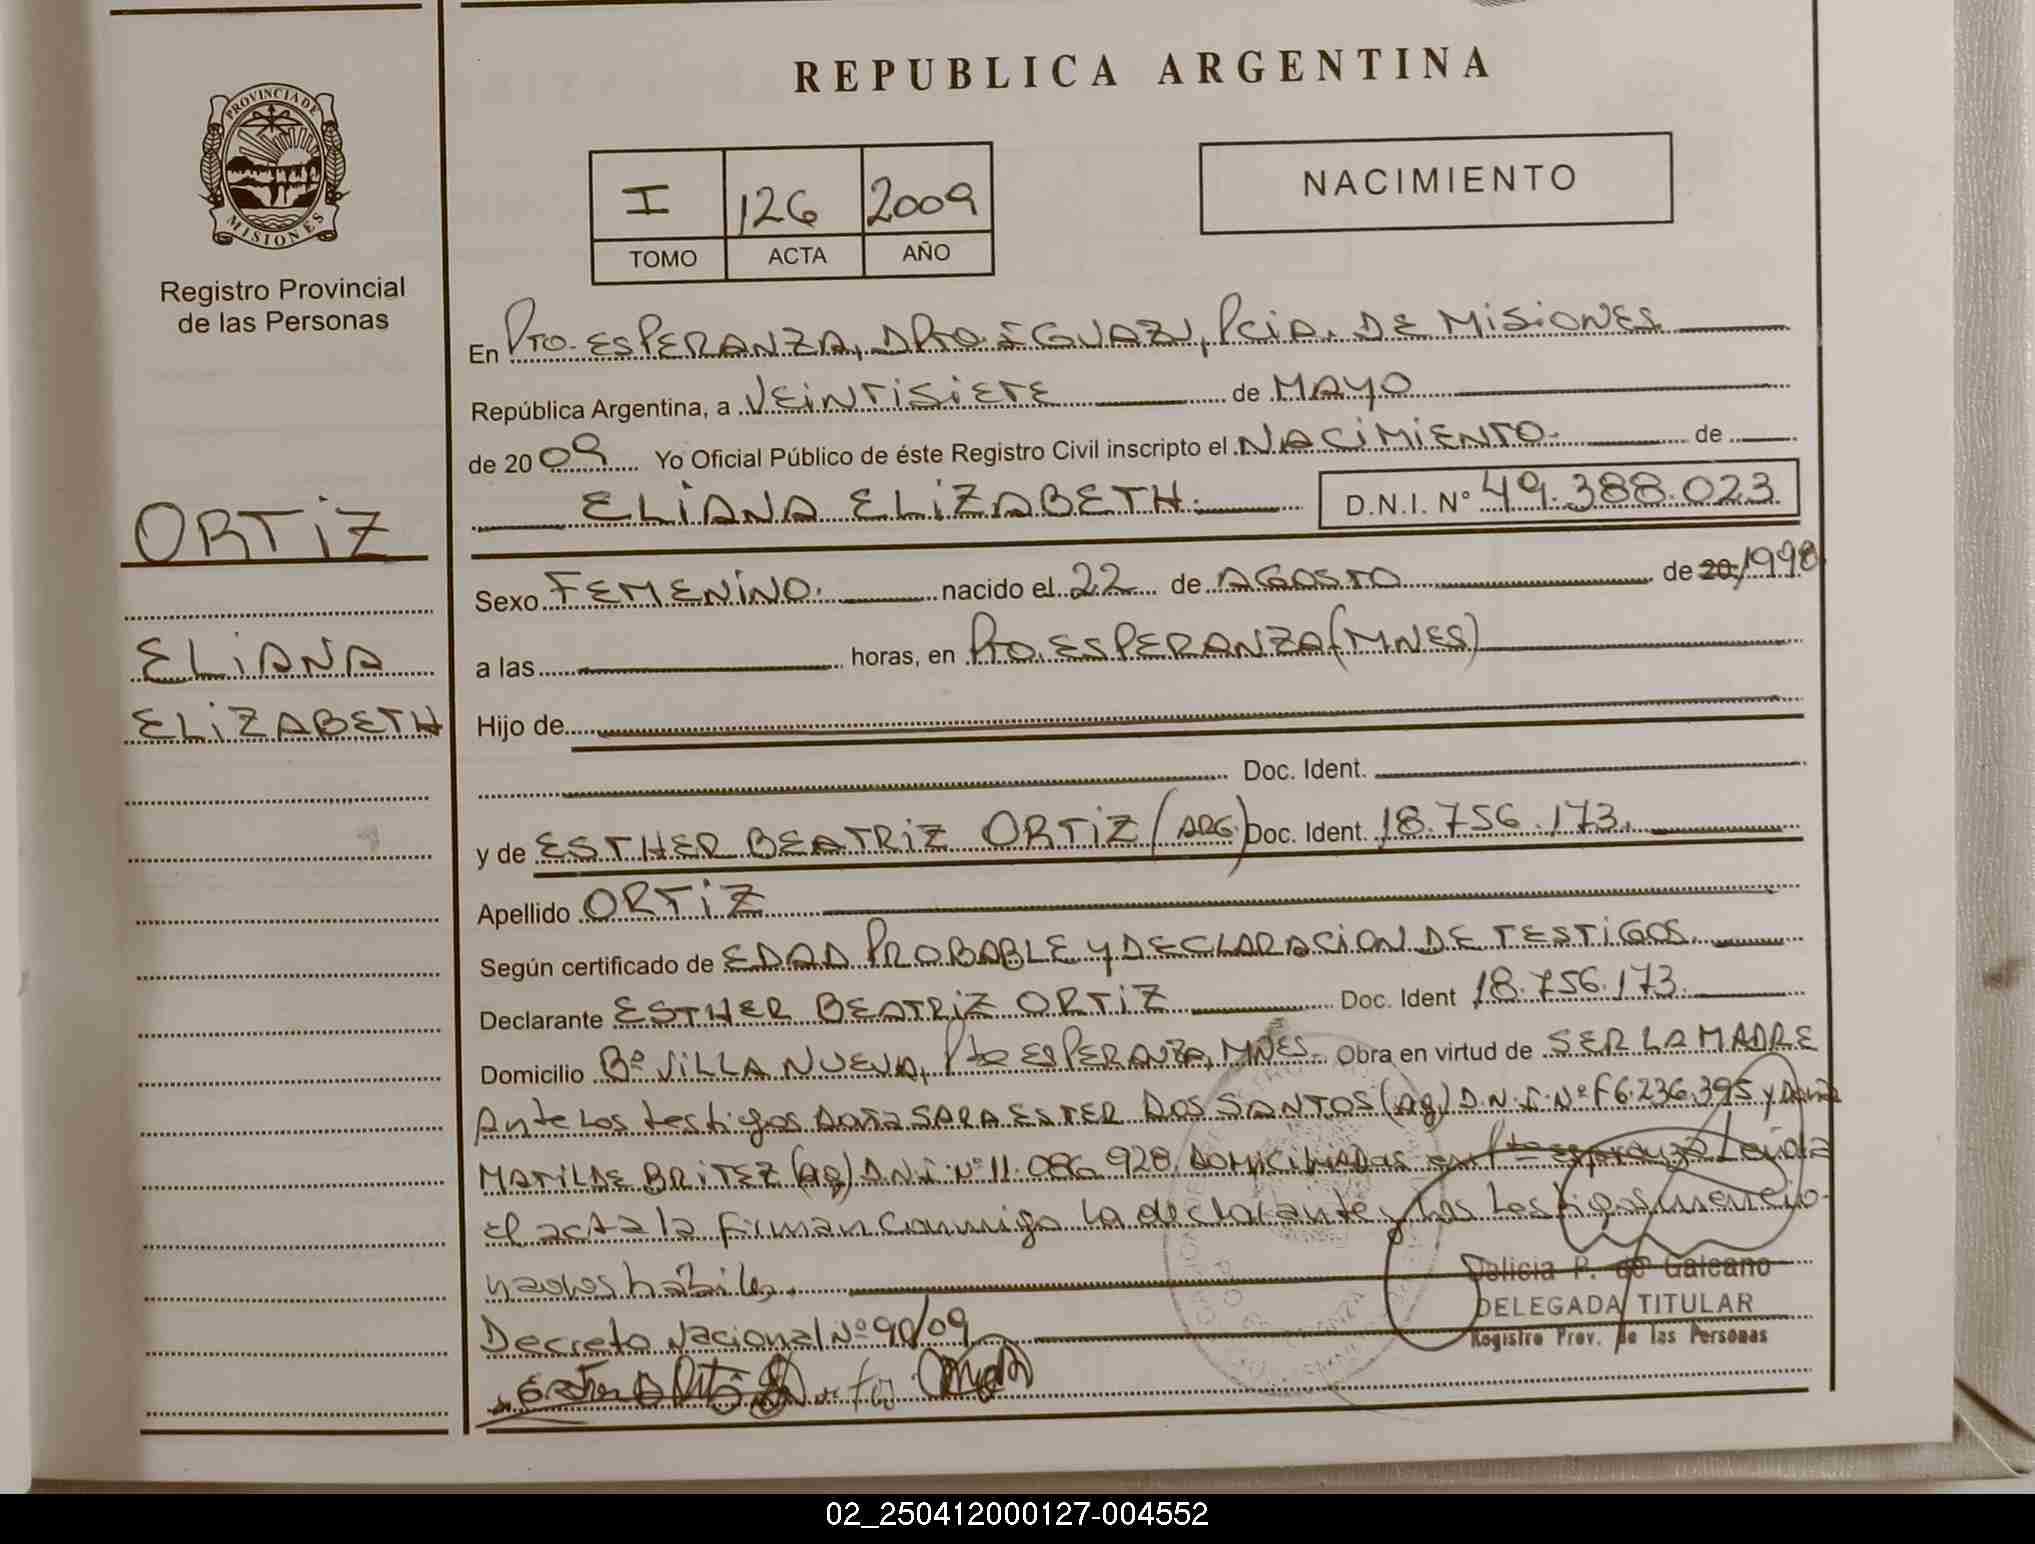 REPUBLICA ARGENTINA
PROVINCIA DE
MISIONES
Registro Provincial
de las Personas
I 126 2009
TOMO ACTA AÑO
NACIMIENTO
ORTIZ
ELIANA
ELIZABETH
En Pto. ESPERANZA, DPTO. IGUAZU, Pcia. DE MISIONES
República Argentina, a VEINTISIETE de MAYO
de 2009 Yo Oficial Público de éste Registro Civil inscripto el NACIMIENTO. de
ELIANA ELIZABETH. D.N.I. N° 49.388.023
Sexo FEMENINO. nacido el 22 de AGOSTO de 20 /1998
a las horas, en Pto. ESPERANZA (MNES)
Hijo de
Doc. Ident.
y de ESTHER BEATRIZ ORTIZ (ARG.) Doc. Ident. 18.756.173.
Apellido ORTIZ
Según certificado de EDAD PROBABLE y DECLARACION DE TESTIGOS.
Declarante ESTHER BEATRIZ ORTIZ Doc. Ident 18.756.173.
Domicilio Bº VILLA NUEVA, Pto ESPERANZA, MNES. Obra en virtud de SER LA MADRE
Ante los testigos DOÑA SARA ESTER DOS SANTOS (ag) D.N.I. Nº F6.236.395 y DOÑA
MATILDE BRITEZ (ag) D.N.I. Nº 11.086.928. DOMICILIADAS en Pto esperanza Leida
el acta la firman conmigo la declarante y los testigos mencio-
nados hábiles.
Decreto Nacional Nº 90/09
Delicia P. de Galeano
DELEGADA TITULAR
Registro Prov. de las Personas
02_250412000127-004552